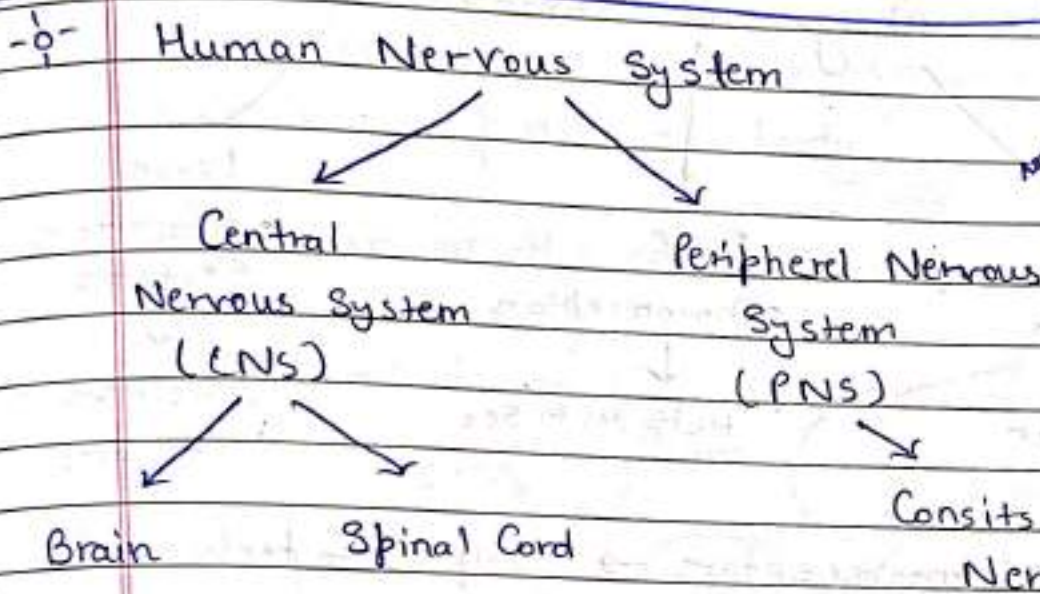 Human Nervous System
Central
Nervous System
(CNS)
Peripherel Nervous
System
(PNS)
Brain
Spinal Cord
Consits